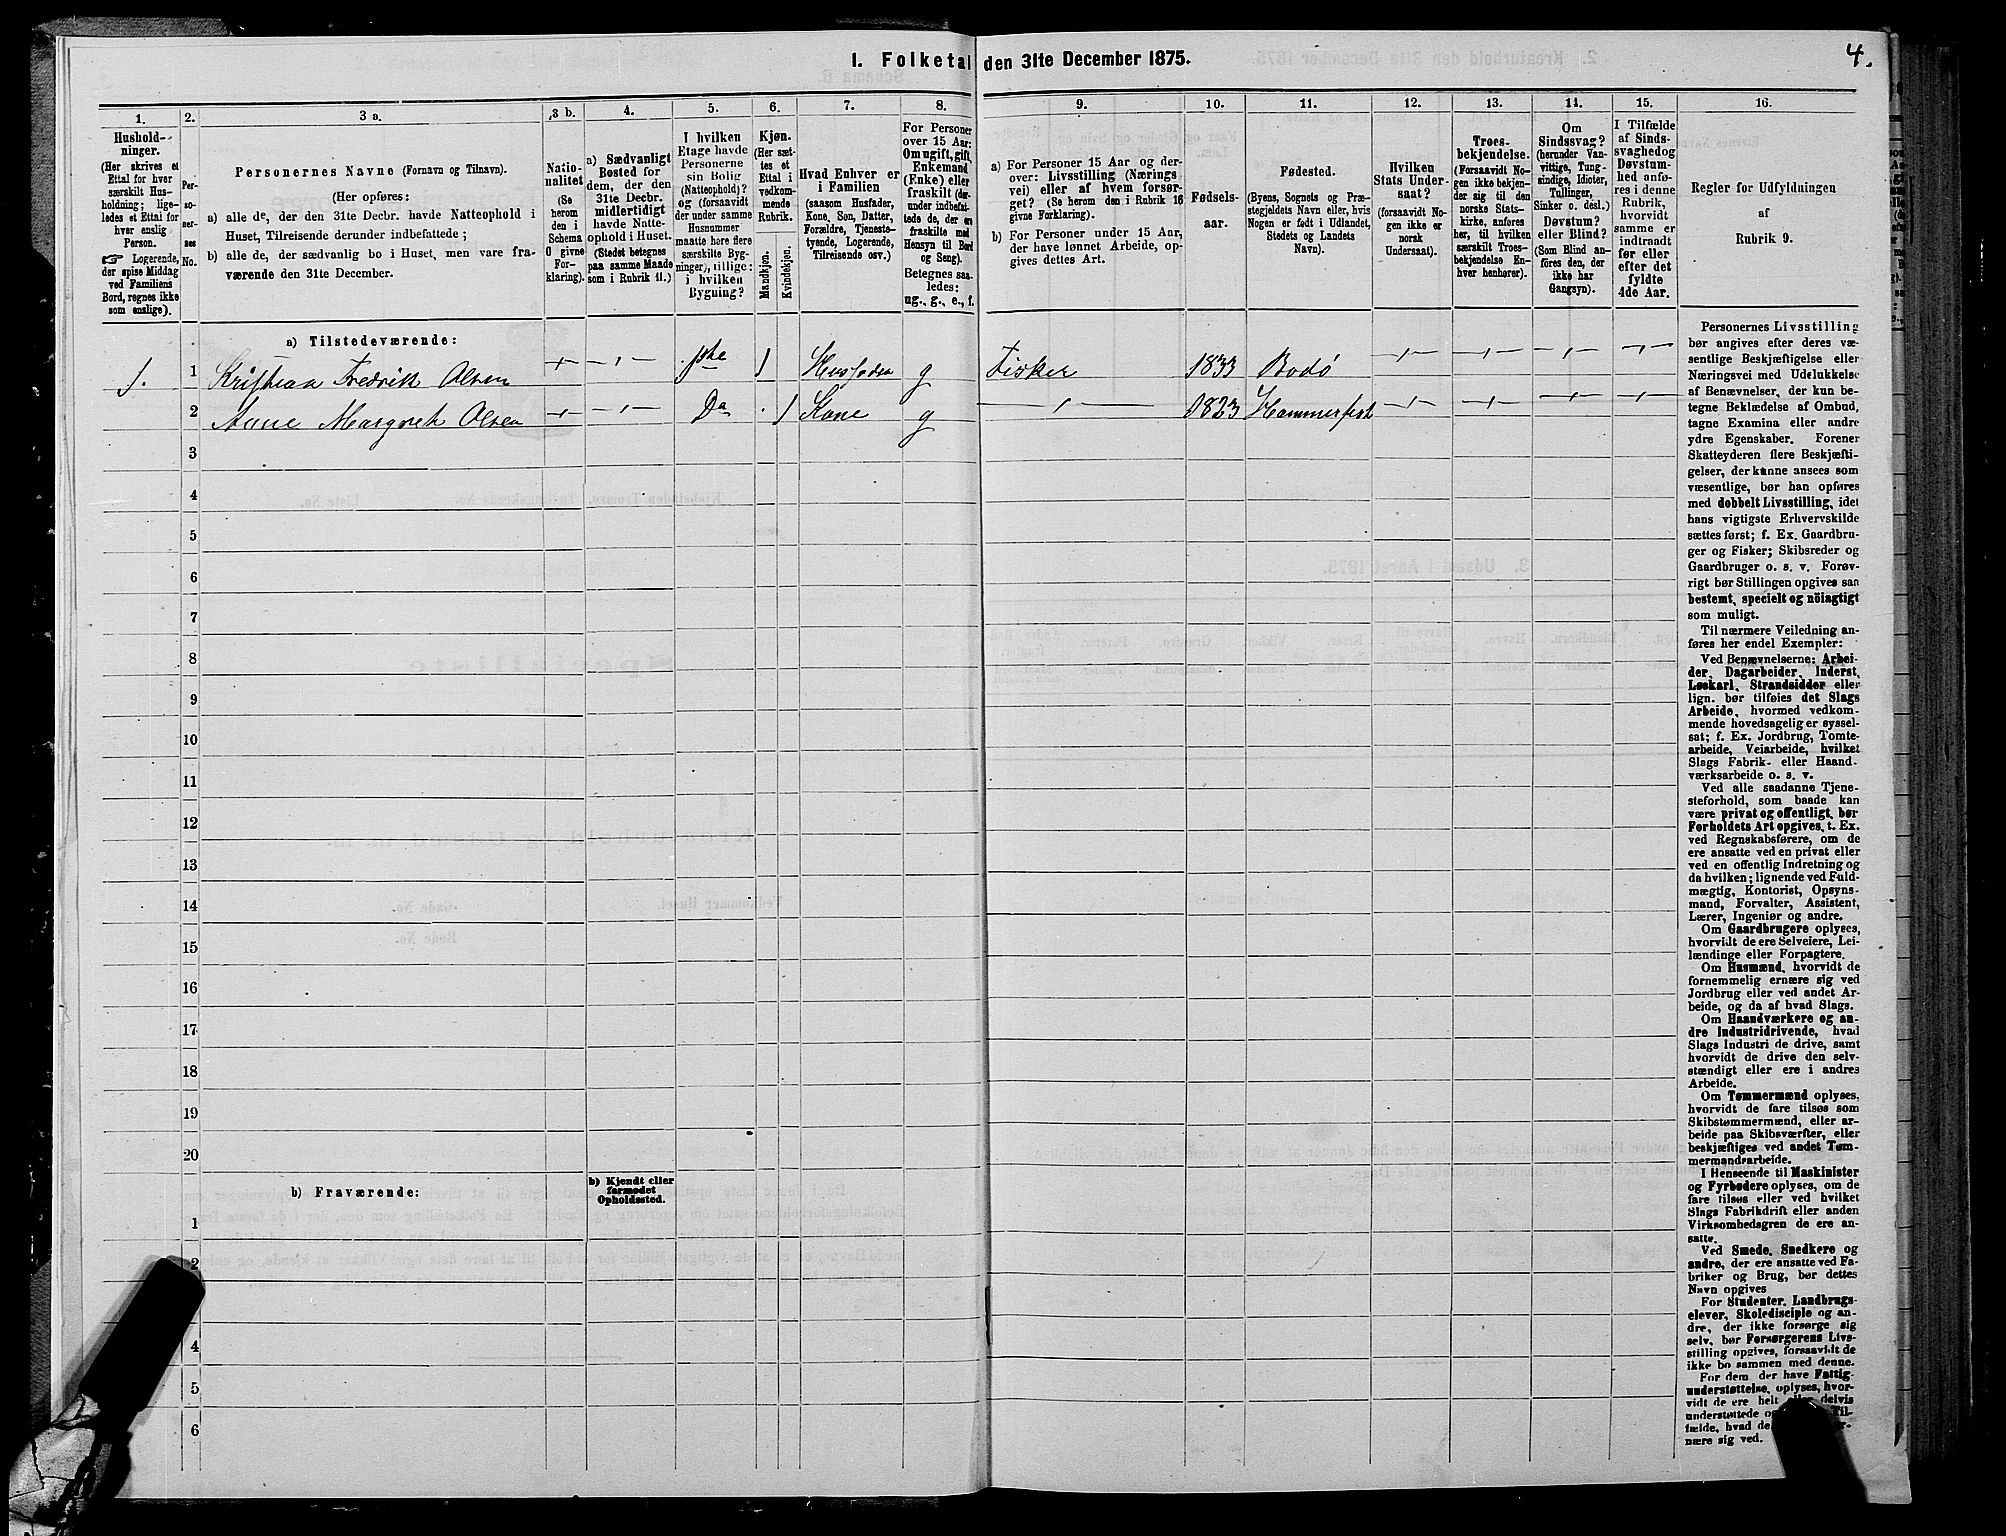 4.
1. Folketal den 31te December 1875.
1. 2. 3 a. 3 b. 4. 5. 6. 7. 8. 9. 10. 11. 12. 13. 14. 15. 16.
Hushold-
ninger.
(Her skrives et
Ettal for hver
særskilt Hus-
holdning; lige-
ledes et Ettal for
hver enslig
Person.
☞ Logerende,
der spise Middag
ved Familiens
Bord, regnes ikke
som enslige).
Per-
so-
ner-
nes
No.
Personernes Navne (Fornavn og Tilnavn).
(Her opføres:
a) alle de, der den 31te Decbr. havde Natteophold i
Huset, Tilreisende derunder indbefattede;
b) alle de, der sædvanlig bo i Huset, men vare fra-
værende den 31te December.
Natio-
nalitet
(Se
herom
den i
Schema
6 givne
For-
klaring).
a) Sædvanligt
Bosted for
dem, der den
31te Decbr.
midlertidigt
havde Natte-
ophold i Huset.
(Stedet betegnes
paa samme Maade
som i Rubrik 11.)
I hvilken
Etage havde
Personerne
sin Bolig
(Natteophold)?
og (forsaavidt
der under samme
Husnummer
maatte høre flere
særskilte Byg-
ninger), tillige:
i hvilken
Bygning?
Kjøn.
(Her sæt-
tes et
Ettal i
vedkom-
mende
Rubrik.
Mandkjøn.
Kvindekjøn.
Hvad Enhver er
i Familien
(saasom Husfader,
Kone, Søn, Datter,
Forældre, Tjeneste-
tyende, Logerende,
Tilreisende osv.)
For Personer
over 15 Aar:
Om ugift, gift,
Enkemand
(Enke) eller
fraskilt (der-
under indbefat-
tede de, der ere
fraskilte med
Hensyn til Bord
og Seng).
Betegnes saa-
ledes:
ug., g., e., f.
a) For Personer 15 Aar og der-
over: Livsstilling (Nærings
vei) eller af hvem forsør-
get? (Se herom den i Rubrik 16
givne Forklaring).
b) For Personer under 15 Aar,
der have lønnet Arbeide, op-
gives dettes Art.
Fødsels-
aar.
Fødested.
(Byens, Sognets og Præ-
stegjeldets Navn eller, hvis
Nogen er født i Udlandet,
Stedets og Landets
Navn).
Hvilken
Stats Under-
saat?
(forsaavidt No-
gen ikke er
norsk
Undersaat).
Troes-
bekjendelse.
(Forsaavidt No-
gen ikke bekjen-
der sig til den
norske Stats-
kirke, anføres
her, til hvilken
særskilt Troes-
bekjendelse En-
hver henhører).
Om
Sindssvag?
(herunder Van-
vittige, Tung-
sindige, Idioter,
Tullinger,
Sinker o. desl.)
Døvstum?
eller Blind?
(Som Blind an-
føres den, der
ikke har
Gangsyn).
I Tilfælde
af Sinds-
svaghed og
Døvstum-
hed anfø-
res i denne
Rubrik,
hvorvidt
samme er
indtraadt
før eller
efter det
fyldte
4de Aar.
Regler for Udfyldningen
af
Rubrik 9.
a) Tilstedeværende:
1. 1 Kristian Fredrik Olsen 1ste 1 Husfader g Fisker 1833 Bodø
2 Anne Margreth Olsen Do 1 Kone g 1823 Hammerfest
3
4
5
6
7
8
9
10
11
12
13
14
15
16
17
18
19
20
b) Fraværende:
b) Kjendt eller
formodet
Opholdssted.
1
2
4
5
6
Personernes Livsstilling
bør angives efter deres væ-
sentlige Beskjæftigelse eller
Næringsvei med Udelukkelse
af Benævnelser, der kun be-
tegne Beklædelse af Ombud,
tagne Examina eller andre
ydre Egenskaber. Forener
Skatteyderen flere Beskjæfti-
gelser, der kunne ansees som
væsentlige, bør han opføres
med dobbelt Livsstilling, idet
hans vigtigste Erhvervskilde
sættes først; f. Ex. Gaardbru-
ger og Fisker; Skibsreder og
Gaardbruger o. s. v. Forøv-
rigt bør Stillingen opgives saa
bestemt, specielt og nöiagtigt
som muligt.
Til nærmere Veiledning an-
føres her endel Exempler:
Ved Benævnelserne: Arbei-
der, Dagarbeider, Inderst,
Løskarl, Strandsidder eller
lign. bør tilføies det Slags
Arbeide, hvormed vedkom-
mende hovedsagelig er syssel-
sat; f. Ex. Jordbrug, Tomte-
arbeide, Veiarbeide, hvilket
Slags Fabrik- eller Haand-
værksarbeide o. s. v.
Ved alle saadanne Tjene-
steforhold, som baade kan
være privat og offentligt, bør
Forholdets Art opgives, t. Ex.
ved Regnskabsførere, om de
ere ansatte ved en privat eller
ved en offentlig Indretning og
da hvilken; lignende ved Fuld-
mægtig, Kontorist, Opsyns-
mand, Forvalter, Assistent,
Lærer, Ingeniør og andre.
Om Gaardbrugere oplyses,
hvorvidt de ere Selveiere, Lei-
lændinge eller Forpagtere.
Om Husmænd, hvorvidt de
fornemmelig ernære sig ved
Jordbrug eller ved andet Ar-
beide, og da af hvad Slags.
Om Haandværkere og an-
dre Industridrivende, hvad
Slags Industri de drive, samt
hvorvidt de drive den selv-
stændigt eller ere i andres
Arbeide.
Om Tømmermænd oplyses,
hvorvidt de fare tilsøs som
Skibstømmermænd, eller ar-
beide paa Skibsværfter, eller
beskjæftiges ved andet Tøm-
mermandsarbeide.
I Henseende til Maskinister
og Fyrbødere oplyses, om de
fare tilsøs eller ved hvilket
Slags Fabrikdrift eller anden
Virksomhedsgren de ere an-
satte.
Ved Smede, Snedkere og
andre, der ere ansatte ved Fa-
briker og Brug, bør dettes
Navn opgives
For Studenter, Landbrugs-
elever, Skoledisciple og an-
dre, der ikke forsørge sig
selv, bør Forsørgerens Livs-
stilling opgives, forsaavidt de
ikke bo sammen med denne.
For dem der have Fattig-
understøttelse, oplyses, hvor-
vidt de ere helt eller delvis
understøttede
fælde, hvad de
nære sig ved.